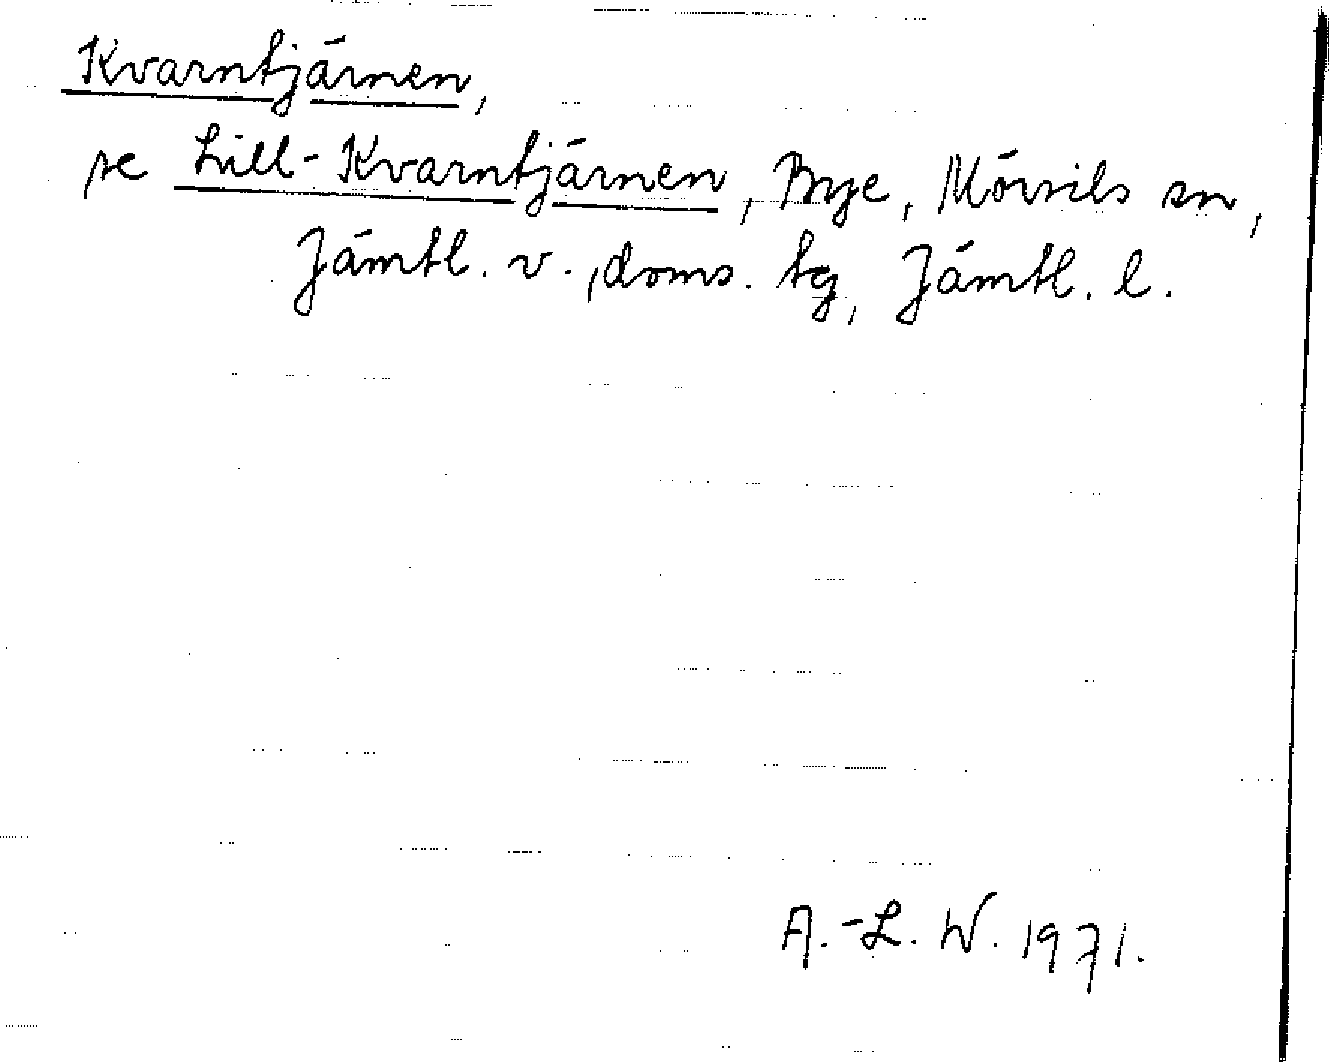 Kvarntjärnen,
se Lill-Kvarntjärnen, Bye, Mörsils sn,
Jämtl. v., doms. tg, Jämtl. l.
A.-L. W. 1971.